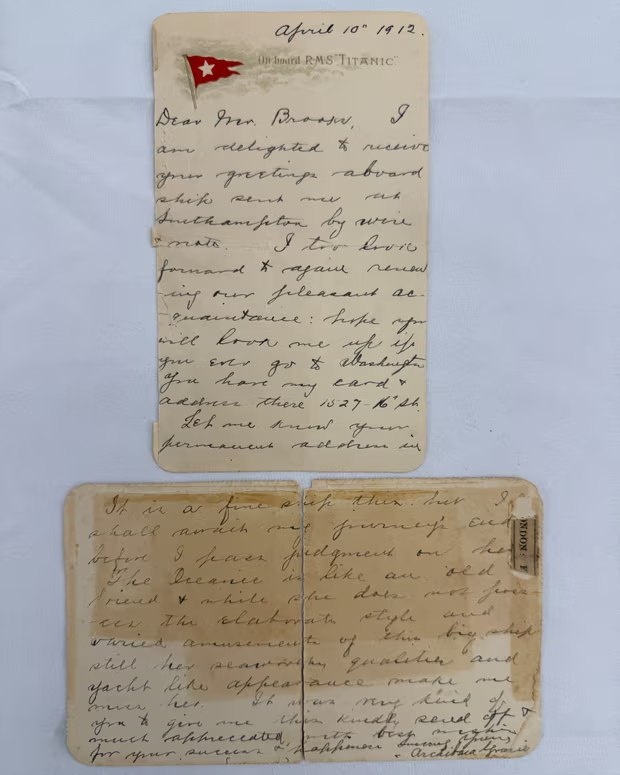 April 10" 1912.
On board R.M.S "TITANIC"
Dear Mr. Brooks, I
am delighted to receive
your greetings aboard
ship sent me at
Southampton by wire
& note. I too look
forward to again renew
-ing our pleasant ac-
quaintance: hope you
will look me up if
you ever go to Washington
You have my card &
address there 1527-16" St.
Let me know your
permanent address in
It is a fine ship this but I
shall await my journey's end
before I pass judgment on her
The Oceanic is like an old
friend & while she does not poss-
ess the elaborate style and
varied amusements of this big ship
still her seaworthy qualities and
yacht like appearance make me
miss her. It was very kind of
you to give me this kindly send off &
much appreciated with best wishes
for your success & happiness
Archibald Gracie
ONDON: E